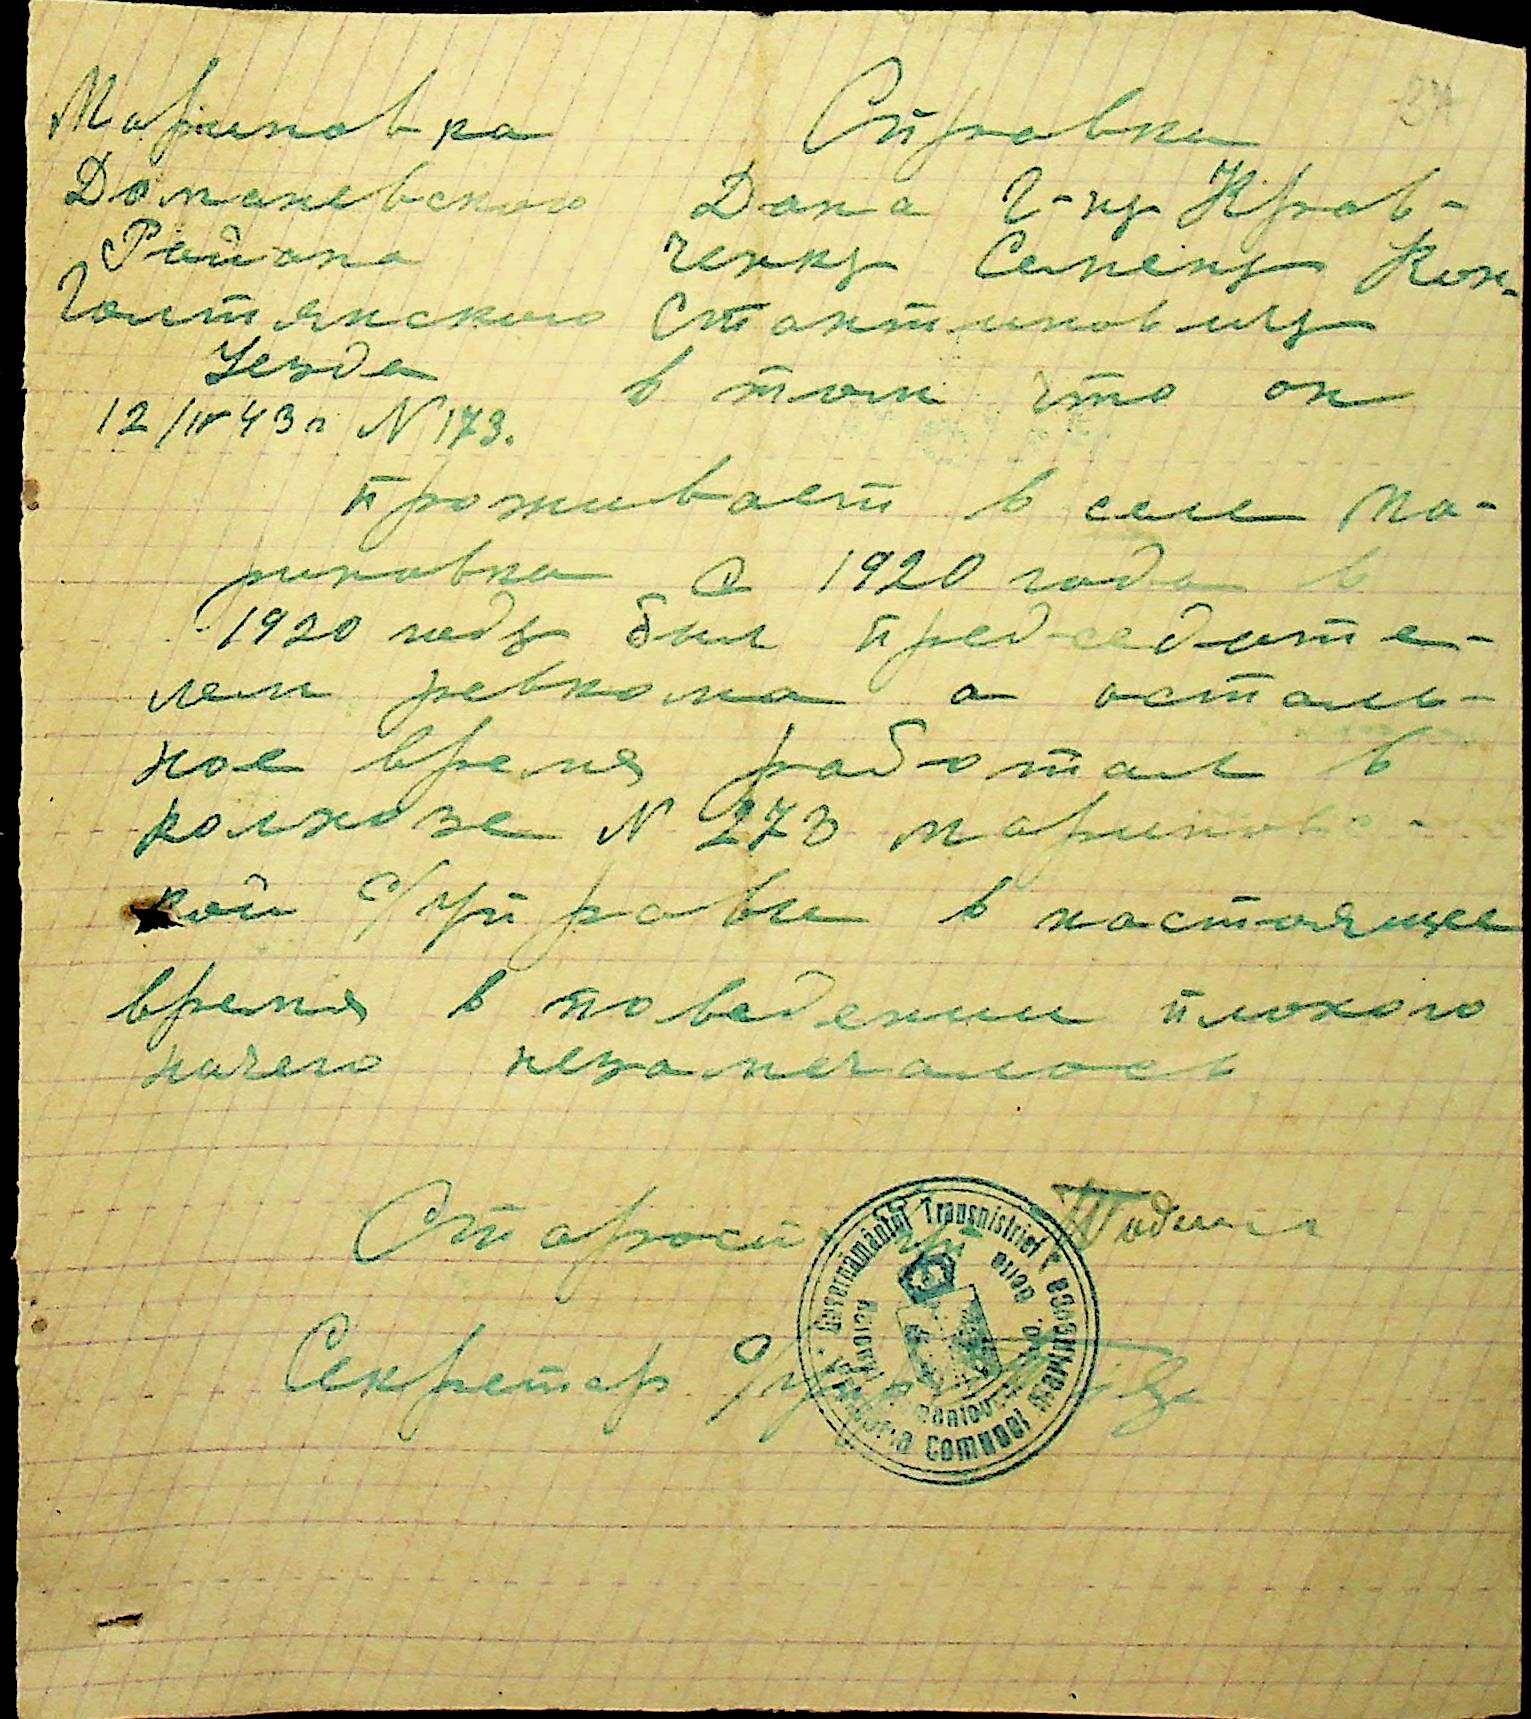 Мариновка
Доманевского
Района
Голтянского
Уезда
12/IV 43 г N 173.
Справка
Дана г-ну Крав-
ченку Семену Кон-
стантиновичу
в том что он
проживает в селе Ма-
риновка с 1920 года в
1920 году был председате-
лем ревкома а осталь-
ное время работал в
колхозе N 273 мариновс-
кой с/управы в настоящее
время в поведении плохого
ничего незамечалось
Староста
Секретар с/упр
Guvernământul Transnistriei
Primăria Comunei Marinovca
Raionul Domaniovca
Jud. Golta